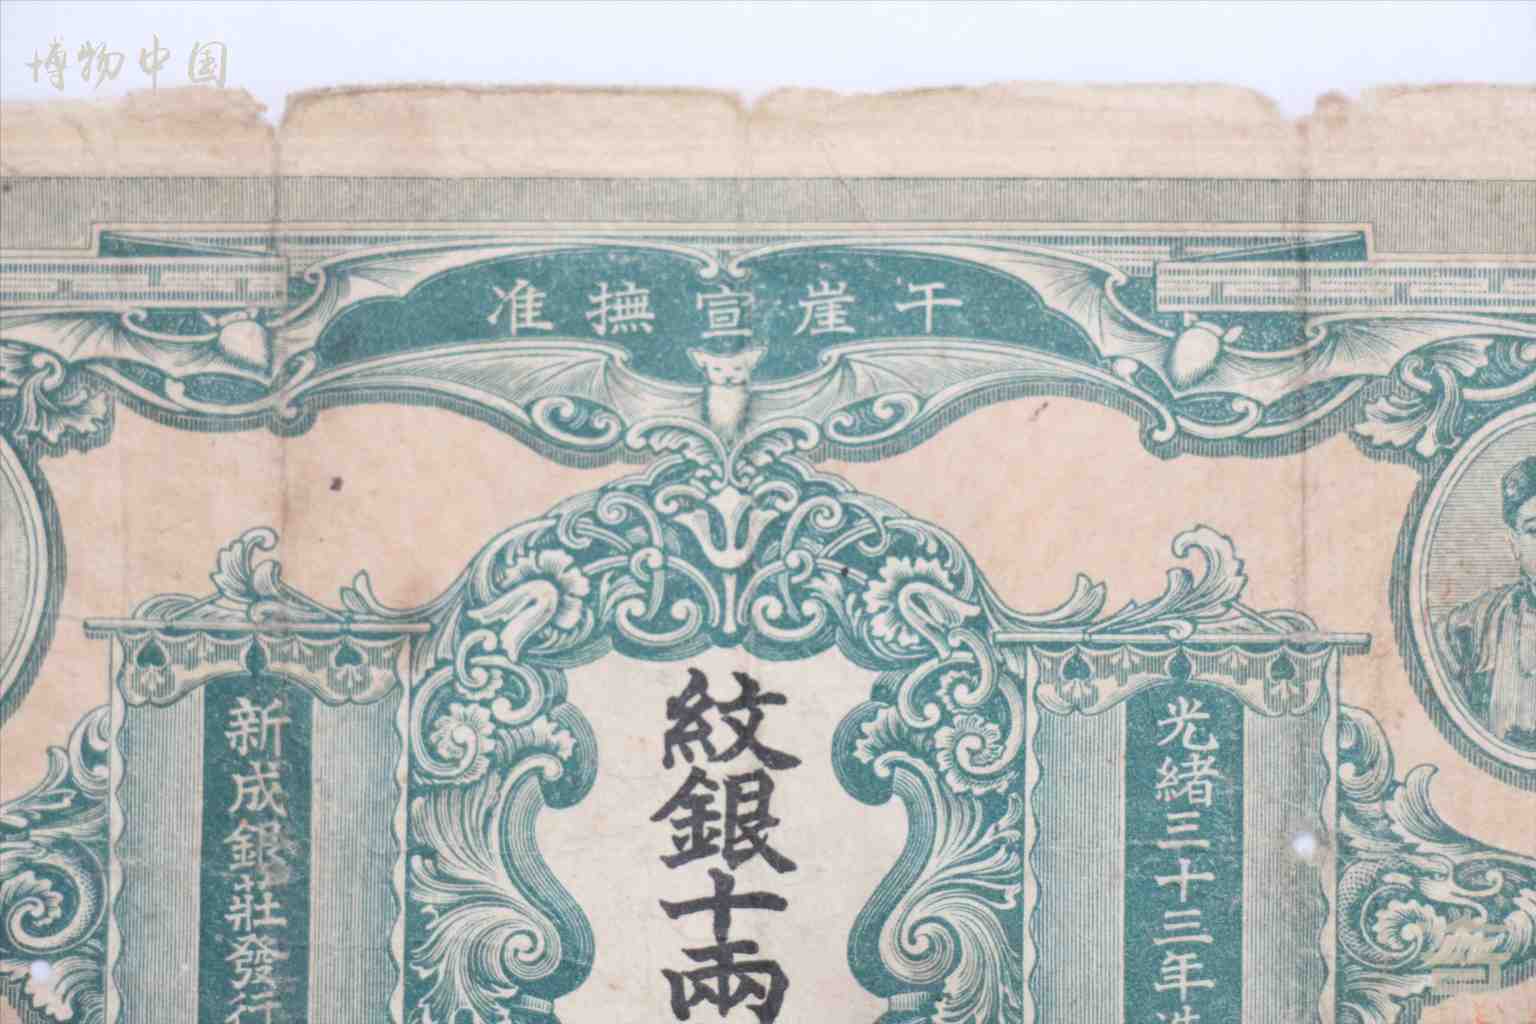 博物中国
干崖宣撫准
光緒三十三年造
紋銀十兩
新成銀莊發行